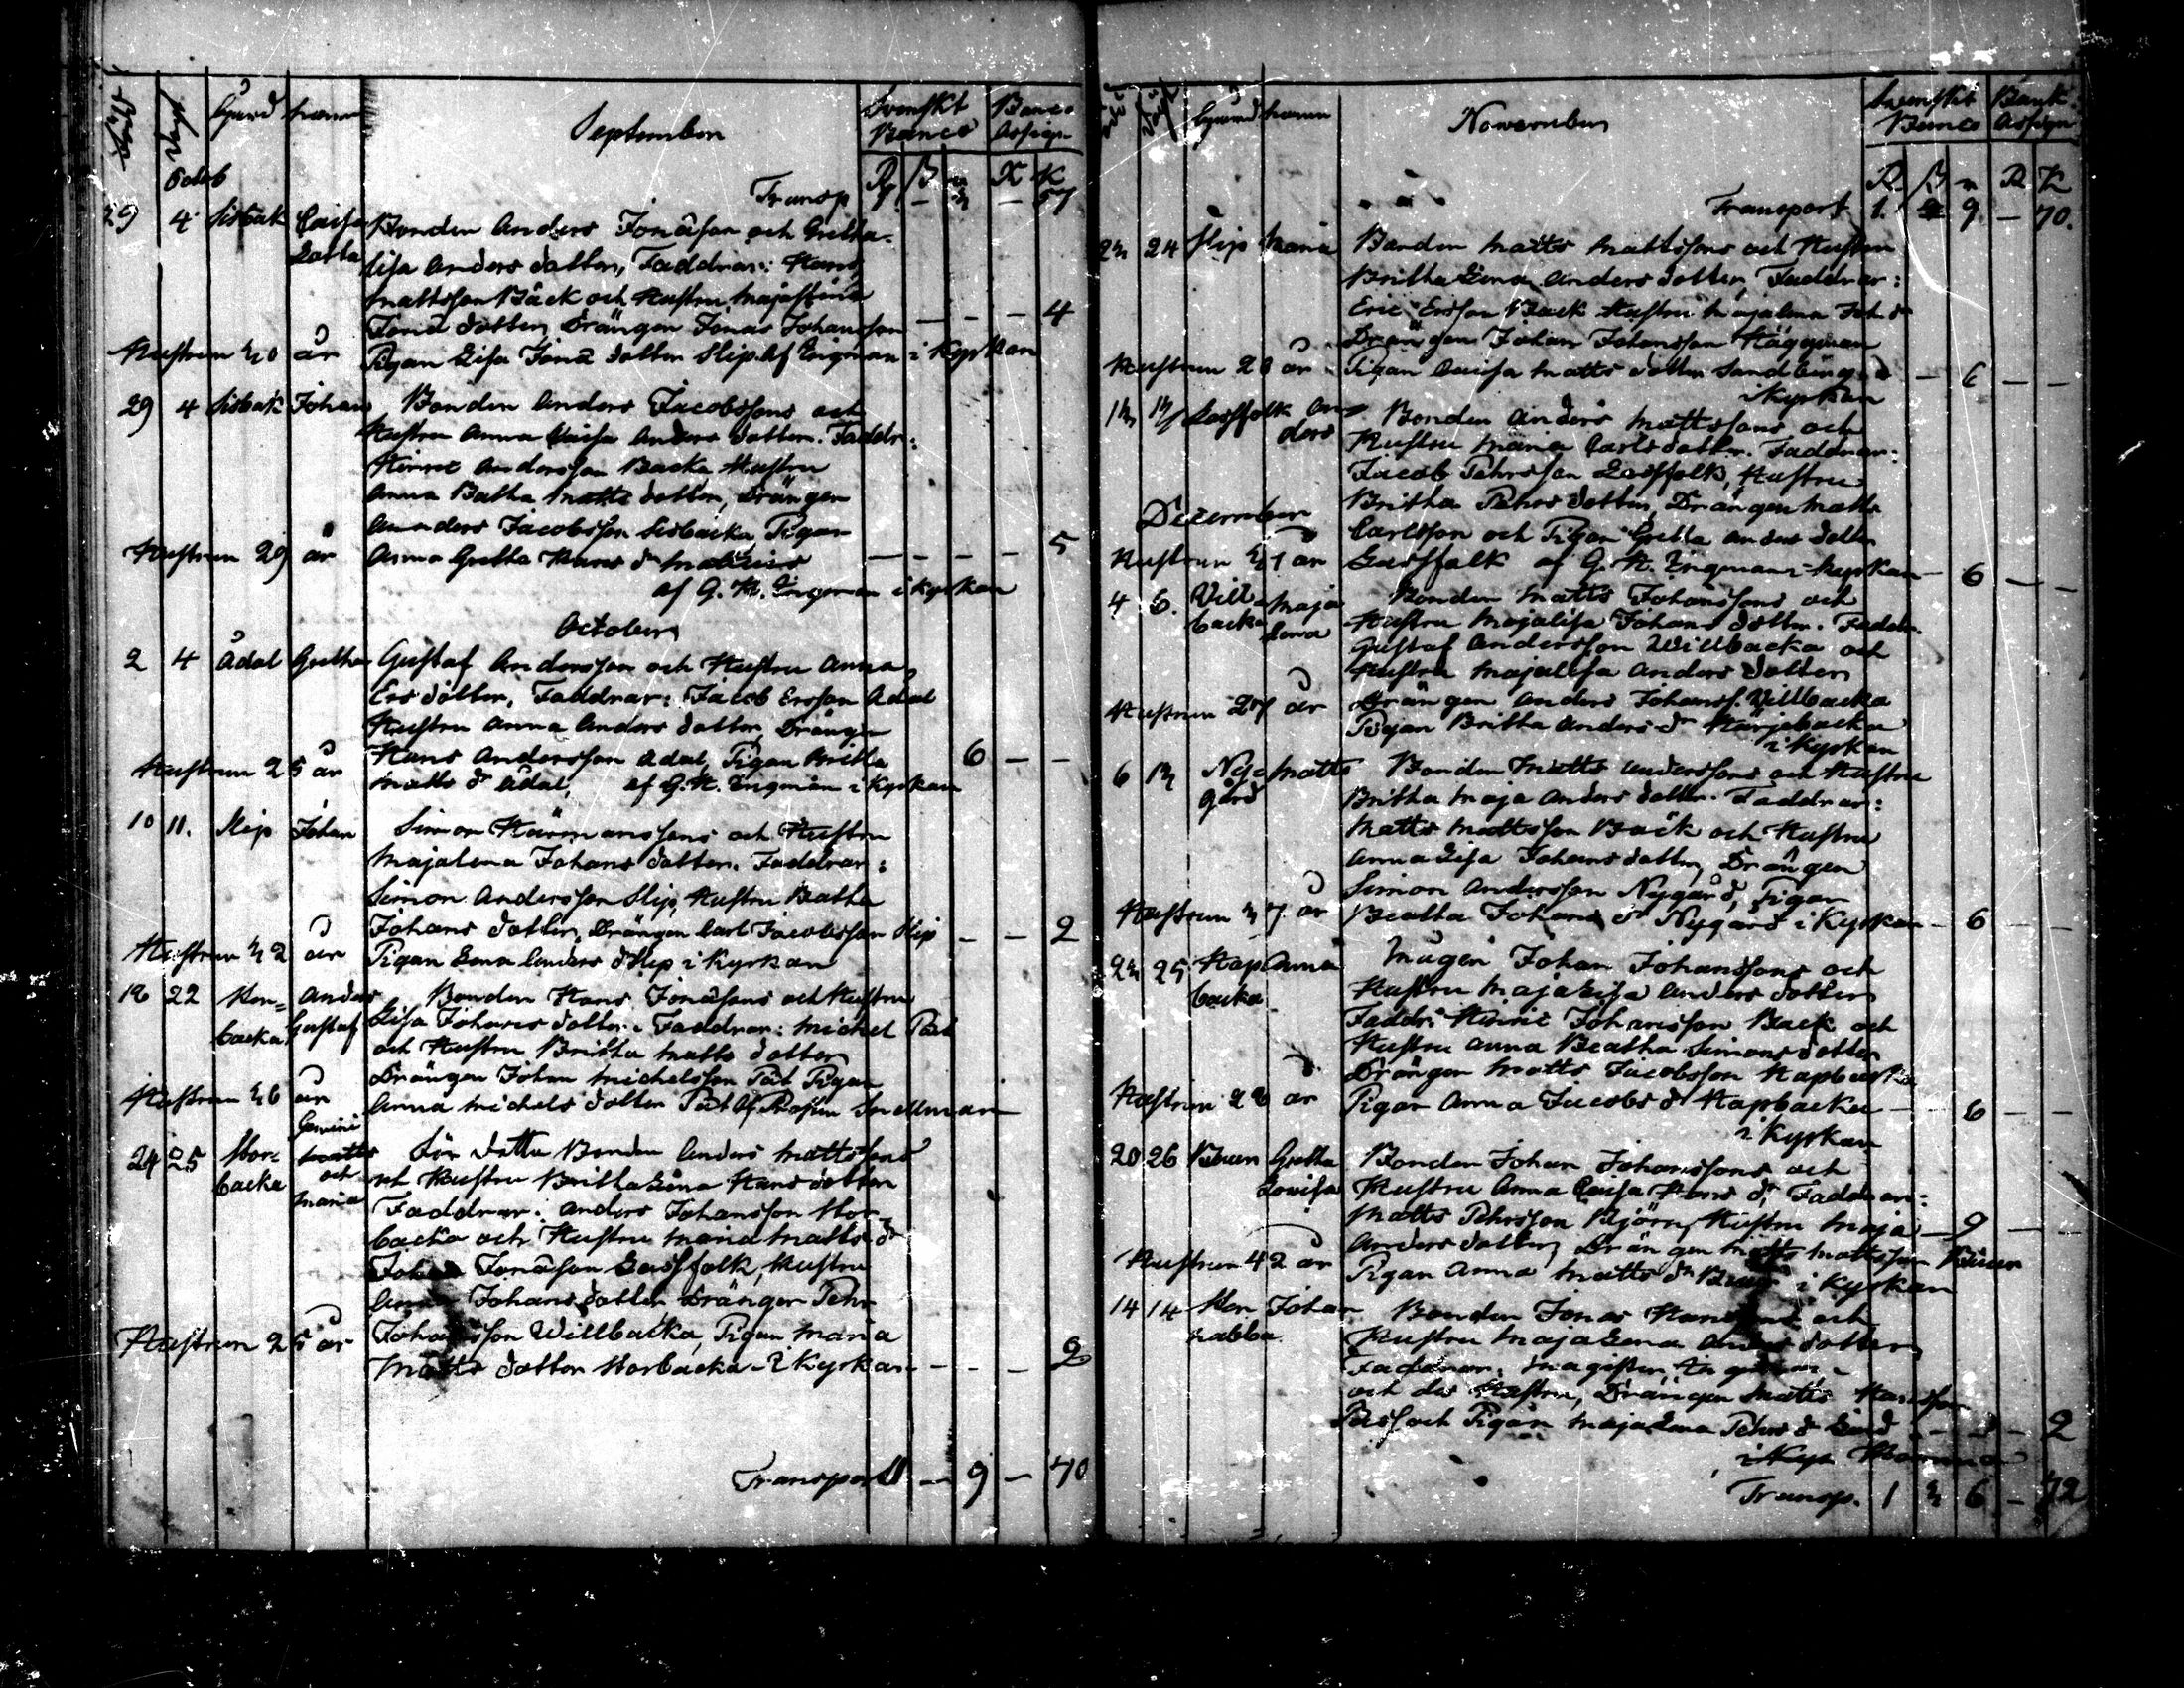 Gård namn September Svenskt Banco Banco Assign
Octob
Transp R β X K 57
29 4 Sisbak Caisa Bonden Anders Jonasson och Gretha
Lotta Lisa Anders dotter, Faddrar: Hans
Mattsson Bäck och Hustru Majastina
Jona dotter, Drängen Jonas Johansson — — — 4
Hustrun 40 år Pigan Lisa Jona dotter Slip. af Engman i Kyrkan
29 4 Sisbak Johan Bonden Anders Jacobssons och
Hustru Anna Caisa Anders dotter. Faddr:
Hinric Andersson Backa Hustru
Anna Batha Matts dotter, Drängen
Anders Jacobsson Sisbacka Pigan
Hustrun 29 år Anna Gretha Hans dr — — — — 5
af G. H. Engman i Kyrkan
October
2 4 Ådal Gretha Gustaf Andersson och Hustru Anna
Ers dotter, Faddrar: Jacob Ersson Ådal
Hustru Anna Anders dotter, Drängen
Hans Andersson Ådal, Pigan Britha 6 — —
Hustrun 25 år Matts dr Ådal, af G. H. Engman i Kyrkan
10 11. Slip Johan Simon Härmanssons och Hustru
Majalena Johans dotter. Faddrar:
Simon Andersson Slip, Hustru Beatha
Johans dotter, Drängen Carl Jacobsson Slip — — 2
Hustrun 42 år Pigan Lena Anders d Slip i Kyrkan
18 22 Stor= Anders Bonden Hans Jonassons och Hustru
backa Gustaf Lisa Johans dotter. Faddrar: Michel Pät
och Hustru Britha Matts dotter
Drängen Johan Michelsson Pät Pigan
Hustrun 46 år Anna Michels dotter Pät af Prosten Snellman
Gemini
24 25 Stor= Matts För detta Bonden Anders Mattssons
backa och och Hustru Britha Lena Hans dotter
Maria Faddrar: Anders Johansson Stor
backa och Hustru Maria Matts dr
Johan Jonasson Gassfolk, Hustru
Anna Johans dotter Drängen Pehr
Hustrun 25 år Johansson Willbacka, Pigan Maria
Matts dotter Storbacka i Kyrkan — — — 2
Transport 1 — 9 — 70
Gård namn November Svenskt Banco Bank Assign
R. β R K
Transport 1. 9 — 70.
24 24 Slip Maria Bonden Matts Mattssons och Hustru
Britha Lena Anders dotter, Faddrar:
Eric Ersson Back Hustru Majalena Joh dr
Drängen Johan Johansson Häggman
Hustrun 28 år Pigan Caisa Matts dotter Sandbäng — 6 — —
i Kyrkan
14 17 Gassfolk An= Bonden Anders Mattssons och
ders Hustru Maria Carls dotter. Faddrar:
Jacob Pehrsson Gassfolk, Hustru
December Britha Pehrs dotter, Drängen Matts
Carlsson och Pigan Gretha Anders dotter
Hustrun 41 år Gassfolk af G. H. Engman i Kyrkan — 6 — —
4 6. Vill= Maja Bonden Matts Johanssons och
backa Lena Hustru Majalisa Johans dotter. Faddr.
Gustaf Andersson Willbacka och
Hustru Majalisa Anders dotter
Hustrun 27 år Drängen Anders Johanss. Villbacka
Pigan Britha Anders dr
i Kyrkan
6 14 Ny= Matts Bonden Matts Anderssons och Hustru
gård Britha Maja Anders dotter. Faddrar:
Matts Mattsson Back och Hustru
Anna Lisa Johans dotter, Drängen
Simon Andersson Nygård, Pigan
Hustrun 47 år Beatha Johans dr Nygård i Kyrkan — 6 — —
24 25 Knap Anna Mågen Johan Johanssons och
backa Hustru Maja Lisa Anders dotter
Faddr: Hinric Johansson Back och
Hustru Anna Beatha Simons dotter
Drängen Matts Jacobsson Kapbacka
Hustrun 28 år Pigan Anna Jacobs d Kapbacka — 6 — —
i Kyrkan
20 26 Buur Gretha Bonden Johan Johanssons och
Lovisa Hustru Anna Caisa Hans dr Faddrar:
Matts Pehrsson Björn, Hustru Maja — 9 —
Anders dotter, Drängen Matts Mattsson Buur
Hustrun 42 år Pigan Anna Matts dr Buur i Kyrkan
14 14 Stor Johan Bonden Jonas Hanssons och
nabba. Hustru Maja Lena Anders dotter
Faddrar: Magister
och des Hustru, Drängen Matts Hansson
och Pigan Maja Lena Pehrs d — — 2
i
Transp. 1 4 6 — 72